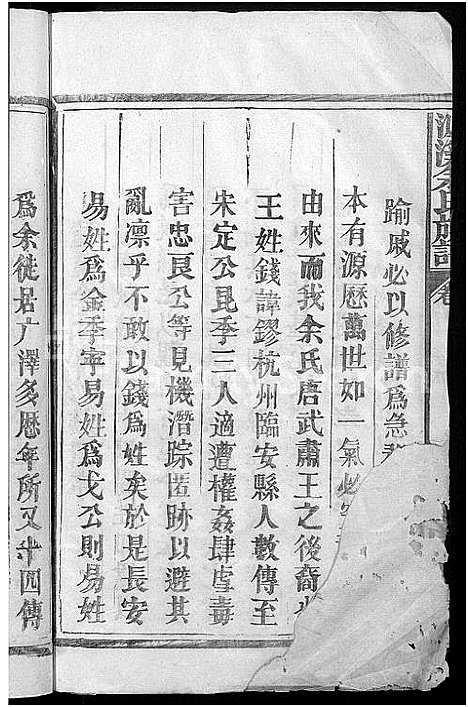 余氏族譜 卷
踰戚必以修譜為急
本有源歷萬世如一氣必
由來而我余氏唐武肅王之後裔
王姓錢諱鏐杭州臨安縣人數傳至
宋定公昆季三人適遭權姦肆虐毒
害忠良公等見機潛踪匿跡以避其
亂凛乎不敢以錢為姓矣於是長安
易姓為金季寧易姓為戈公則易姓
為余徙居广澤多歷年所又十四傳